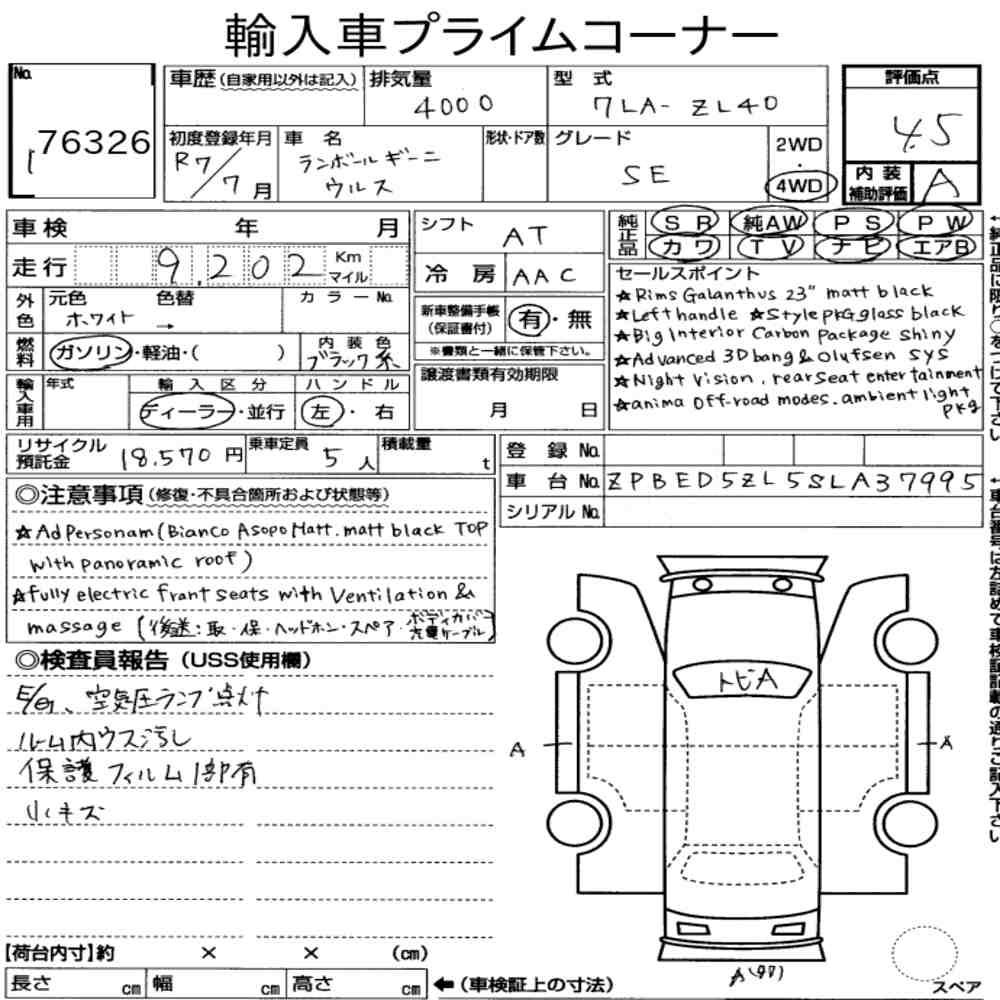 輸入車プライムコーナー
No. 76326
車歴 (自家用以外は記入)
排気量 4000
型式 7LA-ZL40
評価点 4.5
初度登録年月 R7/7月
車名 ランボールギーニ ウルス
形状・ドア数
グレード SE
2WD・4WD
内装補助評価 A
車検 年 月
シフト AT
純正品 SR 純AW PS PW
カワ TV ナビ エアB
走行 9,202 Km マイル
冷房 AAC
セールスポイント
★Rims Galanthus 23" matt black
★Left handle ★Style PKG gloss black
★Big Interior Carbon Package shiny
★Advanced 3D bang & Olufsen sys
★Night Vision. rear seat entertainment
★anima Off-road modes. ambient light PKg
外色 元色 ホワイト → 色替 カラーNo.
新車整備手帳(保証書付) 有・無
※書類と一緒に保管下さい。
燃料 ガソリン・軽油・( )
内装色 ブラック系
譲渡書類有効期限
月 日
輸入車用 年式 輸入区分 ディーラー・並行
ハンドル 左・右
リサイクル預託金 18.570円
乗車定員 5人
積載量 t
登録No.
車台No. ZPBED5ZL5SLA37995
シリアルNo.
◎注意事項(修復・不具合箇所および状態等)
★Ad Personam (Bianco Asopo Matt. matt black TOP
with panoramic roof)
★fully electric frant seats with Ventilation &
massage (後送:取・保・ヘッドホン・スペア・ボディカバー 充電ケーブル)
◎検査員報告(USS使用欄)
空気圧ランプ点灯
ルーム内ウス汚し
保護フィルム1部有
小キズ
トビA
A
A
【荷台内寸】約 × × (cm)
長さ cm 幅 cm 高さ cm
←(車検証上の寸法)
スペア
←純正品に限り○をつけて下さい
←車台番号は左詰めで車検証記載の通りご記入下さい